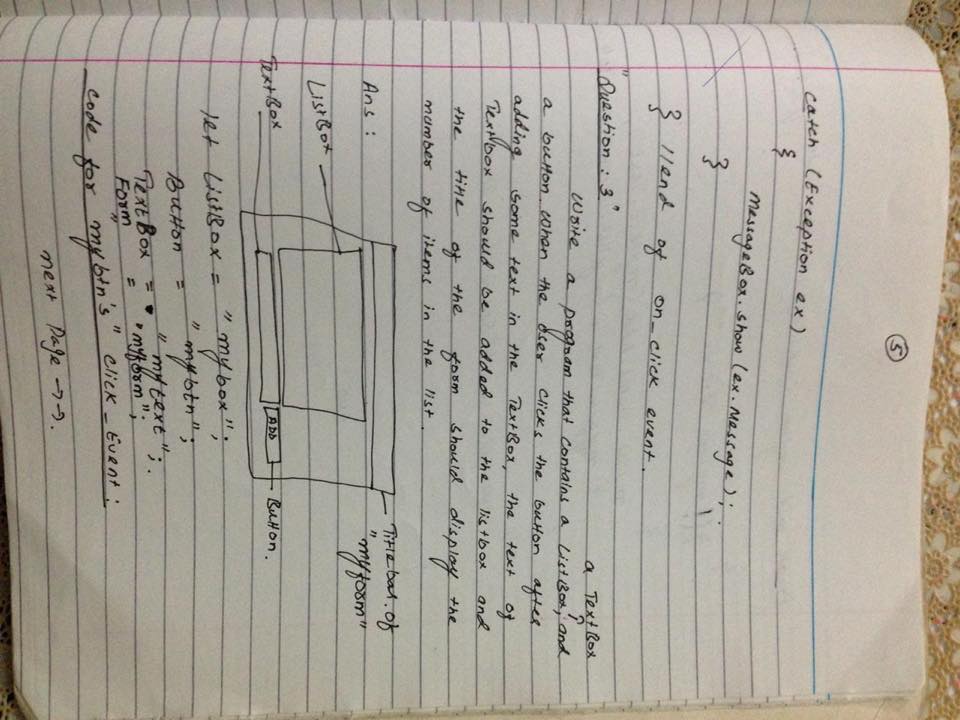 5
catch (Exception ex)
{
messageBox.show (ex.message);
}
} // end of on_click event.
"Question : 3"
write a program that contains a ListBox, a TextBox and
a button. when the user clicks the button after
adding some text in the TextBox, the text of
TextBox should be added to the listbox and
the title of the form should display the
number of items in the list.
Ans :
Titlebar of
"myform"
ListBox
TextBox
ADD
Button.
let ListBox = "mybox";
Button = "mybtn";
TextBox = "mytext";
Form = "myform";
code for mybtn's "click_Event:
next Page →→.